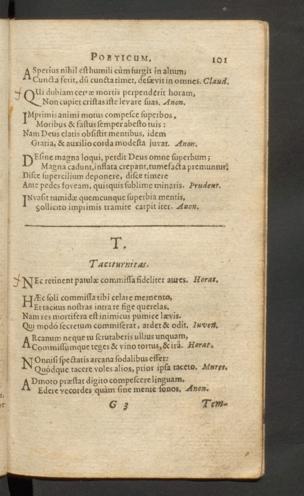 POETICUM. 101
ASperius nihil est humili cùm surgit in altum;
Cuncta ferit, dũ cuncta timet, desævit in omnes. Claud.
QUi dubiam certæ mortis perpenderit horam,
Non cupiet cristas iste levare suas. Anon.
IMprimis animi motus compesce superbos,
Moribus & fastus semper abesto tuis:
Nam Deus elatis obsistit mentibus, idem
Gratia, & auxilio corda modesta juvat. Anon.
DEsine magna loqui, perdit Deus omne superbum;
Magna cadunt, inflata crepant, tumefacta premuntur.
Disce supercilium deponere, disce timere
Ante pedes foveam, quisquis sublime minaris. Prudent.
INvasit tumidæ quemcunque superbia mentis,
Sollicito imprimis tramite carpit iter. Anon.
T.
Taciturnitas.
NEc retinent patulæ commissa fideliter aures. Horat.
HÆc soli commissa tibi celare memento,
Et tacitus nostras intra te fige querelas.
Nam res mortifera est inimicus pumice lævis.
Qui modò secretum commiserat, ardet & odit. Juven.
ARcanum neque tu scrutaberis ullius unquam,
Commissumque teges & vino tortus, & irâ. Horat.
NOn nisi spectatis arcana sodalibus effer:
Quódque tacere voles alios, prior ipsa taceto. Muret.
ADmoto præstat digito compescere linguam,
Edere vecordes quàm sine mente sonos. Anon.
G 3 Tem-